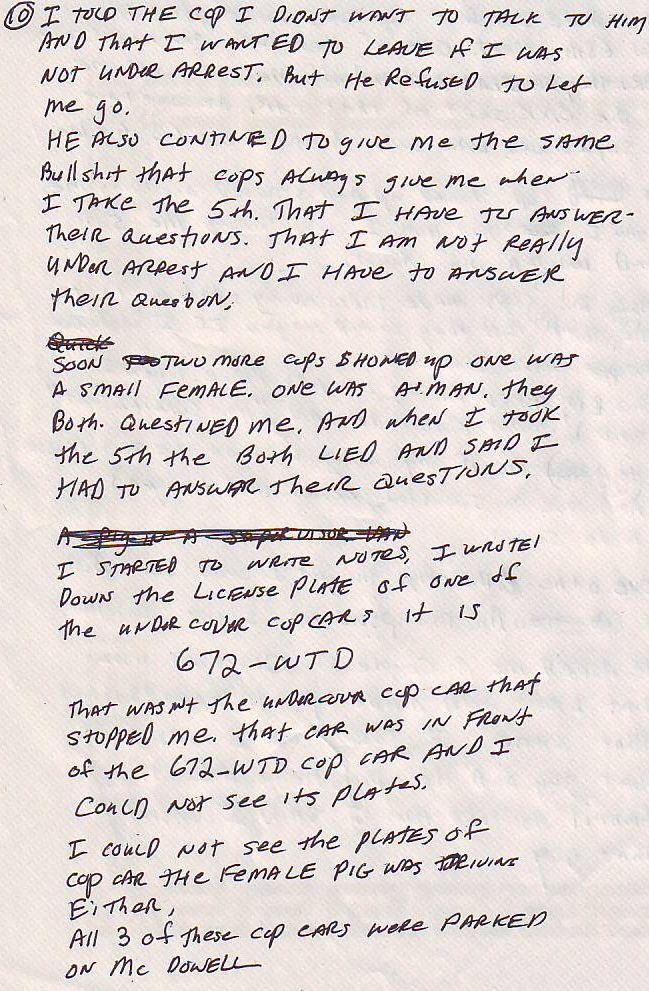 10 I TOLD THE COP I DIDNT WANT TO TALK TO HIM
AND THAT I WANTED TO LEAVE IF I WAS
NOT UNDER ARREST. But He REFUSED to Let
me go.
HE ALSO CONTINED TO give me the SAME
Bullshit that cops ALWAYS give me when
I TAKE the 5th. THAT I HAVE to ANSWER
their Questions. THAT I AM NOT REAlly
UNDER ARREST AND I HAVE to ANSWER
their Question.
Quick
SOON TWO MORE COPS SHOWED up ONE WAS
A SMALL FEMALE. ONE WAS A MAN. they
Both. QUESTINED me. AND when I took
the 5th the Both LIED AND SAID I
HAD TO ANSWER their QUESTIONS.
A Pig IN A SUPERVISOR VAN
I STARTED TO WRITE NOTES, I WROTE
DOWN the LICENSE PLATE of one of
the UNDER COVER COP CARS it IS
672-WTD
THAT WASNT the UNDERCOVER cop CAR that
STOPPED me. that CAR WAS IN FRONT
of the 672-WTD COP CAR AND I
COULD NOT see its PLATES.
I COULD NOT see the PLATES of
cop CAR the FEMALE PIG WAS DRIVING
EITHER,
All 3 of these cop CARS were PARKED
ON Mc DOWELL